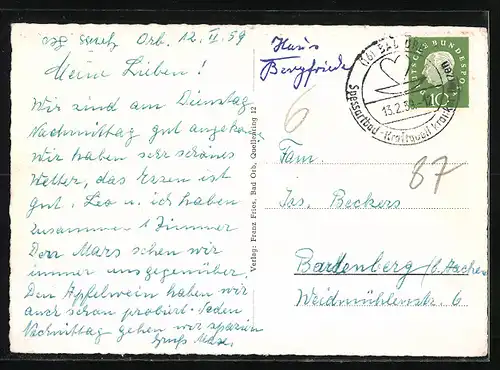 Orb. 12. II. 59
Meine Lieben!
Wir sind am Dienstag
Nachmittag gut angekom.
Wir haben sehr schönes
Wetter, das Essen ist
gut. Leo u. ich haben
zusammen 1 Zimmer
Den Mars sehen wir
immer uns gegenüber.
Den Apfelwein haben wir
auch schon probürt. Jeden
Nachmittag gehen wir spazieren
Gruß
Haus
Bergfriede
Verlag: Franz Fries, Bad Orb, Quellenring 12
(16) BAD ORB
13.2.59
Spessartbad - Kraftquell
DEUTSCHE BUNDESPOST
10
6
87
Fam.
Jos. Beckers
Bardenberg b/ Aachen
Weidmühlenstr. 6